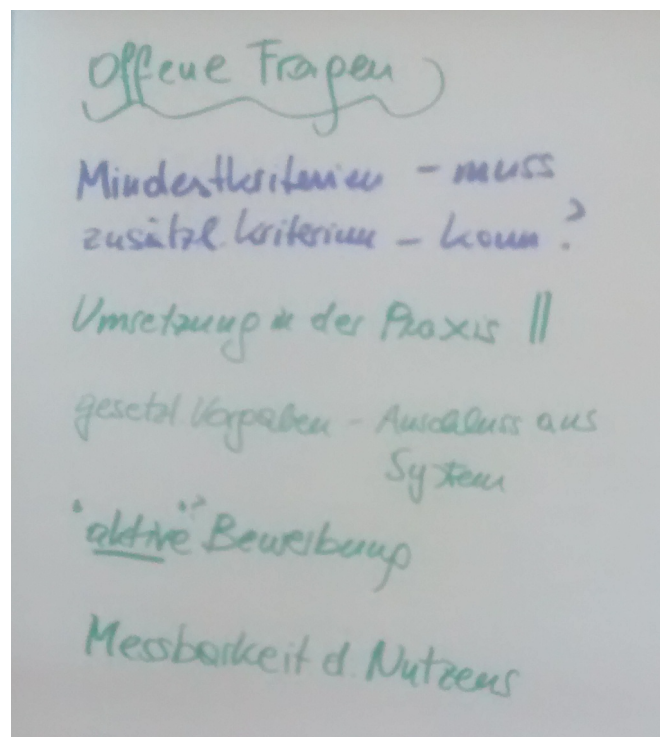 Offene Fragen
Mindestkriterien - muss
zusätzl. Kriterium - kann?
Umsetzung in der Praxis ||
gesetzl Vorgaben - Ausschluss aus
System
"aktive" Bewerbung
Messbarkeit d. Nutzens